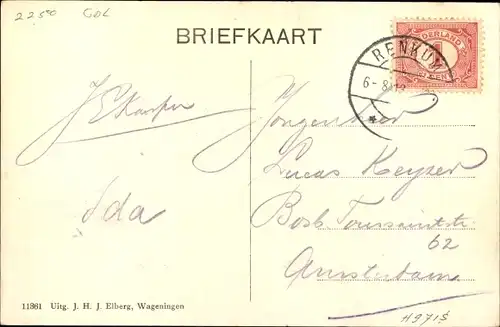 2250 GDL
BRIEFKAART
NEDERLAND
1
CENT
RENKUM
6-8
Jongenheer
Lucas Keyzer
Bosb. Toussaintstr.
62
Amsterdam
Ida
11861 Uitg. J. H. J. Elberg, Wageningen